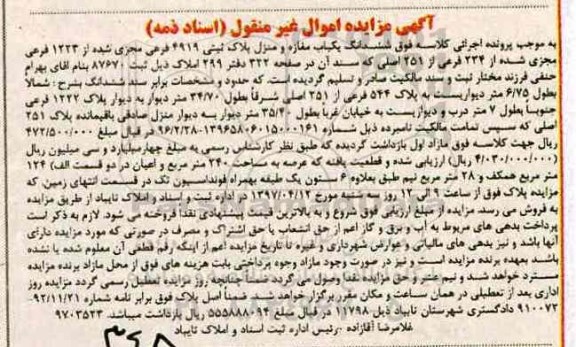 آگهی مزایده اموال غیر منقول (اسناد ذمه)
به موجب پرونده اجرائی کلاسه فوق ششدانگ یکباب مغازه و منزل پلاک ثبتی ۴۹۱۹ فرعی مجزی شده از ۱۲۲۳ فرعی
مجزی شده از ۲۳۴ فرعی از ۲۵۱ اصلی که سند آن در صفحه ۳۲۲ دفتر ۲۹۹ املاک ذیل ثبت ۸۷۶۷۰ بنام آقای بهرام
حنفی فرزند مختار ثبت و سند مالکیت صادر و تسلیم گردیده است. که حدود و مشخصات برابر سند ششدانگ بشرح: شمالا
بطول ۶/۷۵ متر دیواریست به پلاک ۵۴۴ فرعی از ۲۵۱ اصلی شرقاً بطول ۳۴/۷۰ متر دیوار به دیوار پلاک ۱۲۲۲ فرعی
جنوباً بطول ۷ متر درب و دیواریست به خیابان غرباً بطول ۳۵/۴۰ متر دیوار به دیوار منزل صادقی باقیمانده پلاک ۲۵۱
اصلی که سپس تمامت مالکیت نامبرده ذیل شماره ۱۳۹۶۵۸۰۶۰۱۵۰۰۰۱۶۱-۹۶/۲/۲۸ در قبال مبلغ ۴۷۲/۵۰۰/۰۰۰
ریال جهت کلاسه فوق مازاد اول بازداشت گردیده که طبق نظر کارشناس رسمی به مبلغ چهارمیلیارد و سی میلیون ریال
(۴/۰۳۰/۰۰۰/۰۰۰ ریال) ارزیابی شده و قطعیت یافته که عرصه به مساحت ۲۴۰ متر مربع و اعیان در دو قسمت الف) ۱۲۴
متر مربع همکف و ۲۸ متر مربع نیم طبق بعلاوه ۶ ستون یک طبقه بهمراه فونداسیون تک در قسمت انتهای زمین، که
مزایده پلاک فوق از ساعت ۹ الی ۱۲ روز سه شنبه مورخ ۱۳۹۷/۰۴/۱۲ در اداره ثبت و اسناد و املاک تایباد از طریق مزایده
به فروش می رسد. مزایده از مبلغ ارزیابی فوق شروع و به بالاترین قیمت پیشنهادی نقداً فروخته می شود. لازم به ذکر است
پرداخت بدهی های مربوط به آب و برق و گاز اعم از حق انشعاب یا حق اشتراک و مصرف در صورتی که مورد مزایده دارای
آنها باشد و نیز بدهی های مالیاتی و عوارض شهرداری و غیره تا تاریخ مزایده اعم از اینکه رقم قطعی آن معلوم شده یا نشده
باشد بعهده برنده مزایده است و نیز در صورت وجود مازاد وجوه پرداختی بابت هزینه های فوق از محل مازاد برنده مزایده
مسترد خواهد شد و نیم عشر و حق مزایده نقدا وصول می گردد ضمناً چنانچه روز مزایده تعطیل رسمی گردد مزایده روز
اداری بعد از تعطیلی در همان ساعت و مکان مقرر برگزار خواهد شد. ضمناً اصل پلاک فوق برابر نامه شماره ۹۲/۱۱/۲۱-
۹۱۰۰۷۲ دادگستری شهرستان تایباد ذیل ۱۱۷۹۸ در قبال مبلغ ۵۵۵۸۸۸۰۹۴ ریال بازداشت میباشد. ۹۷۰۳۵۲۳
غلامرضا آقازاده -رئیس اداره ثبت اسناد و املاک تایباد